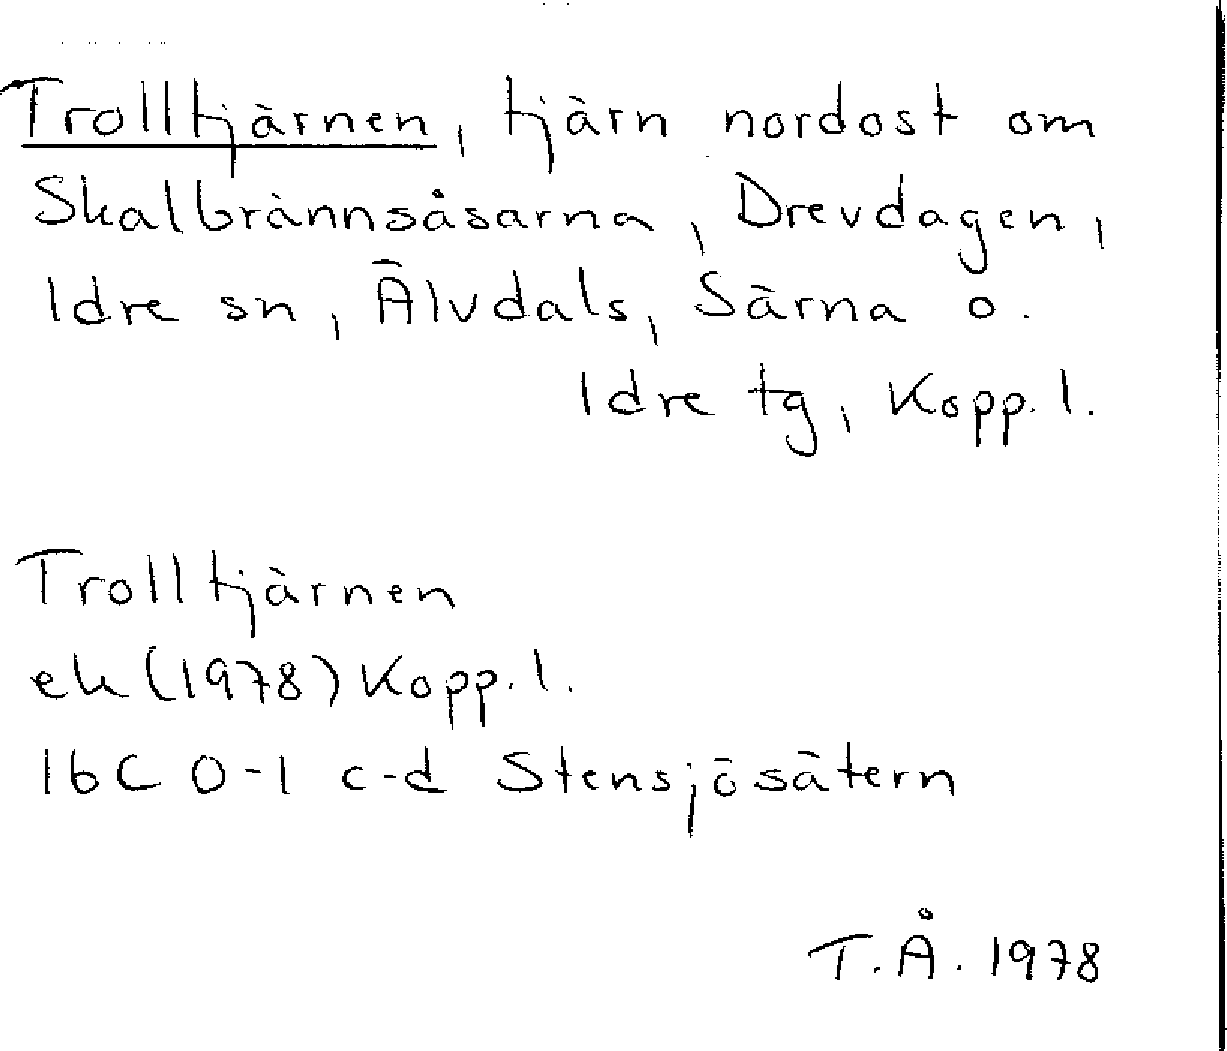 Trolltjärnen, tjärn nordost om
Skalbrännsåsarna, Drevdagen,
Idre sn, Älvdals, Särna o.
Idre tg, Kopp. l.
Trolltjärnen
ek (1978) Kopp. l.
16C 0-1 c-d Stensjösätern
T.Å. 1978